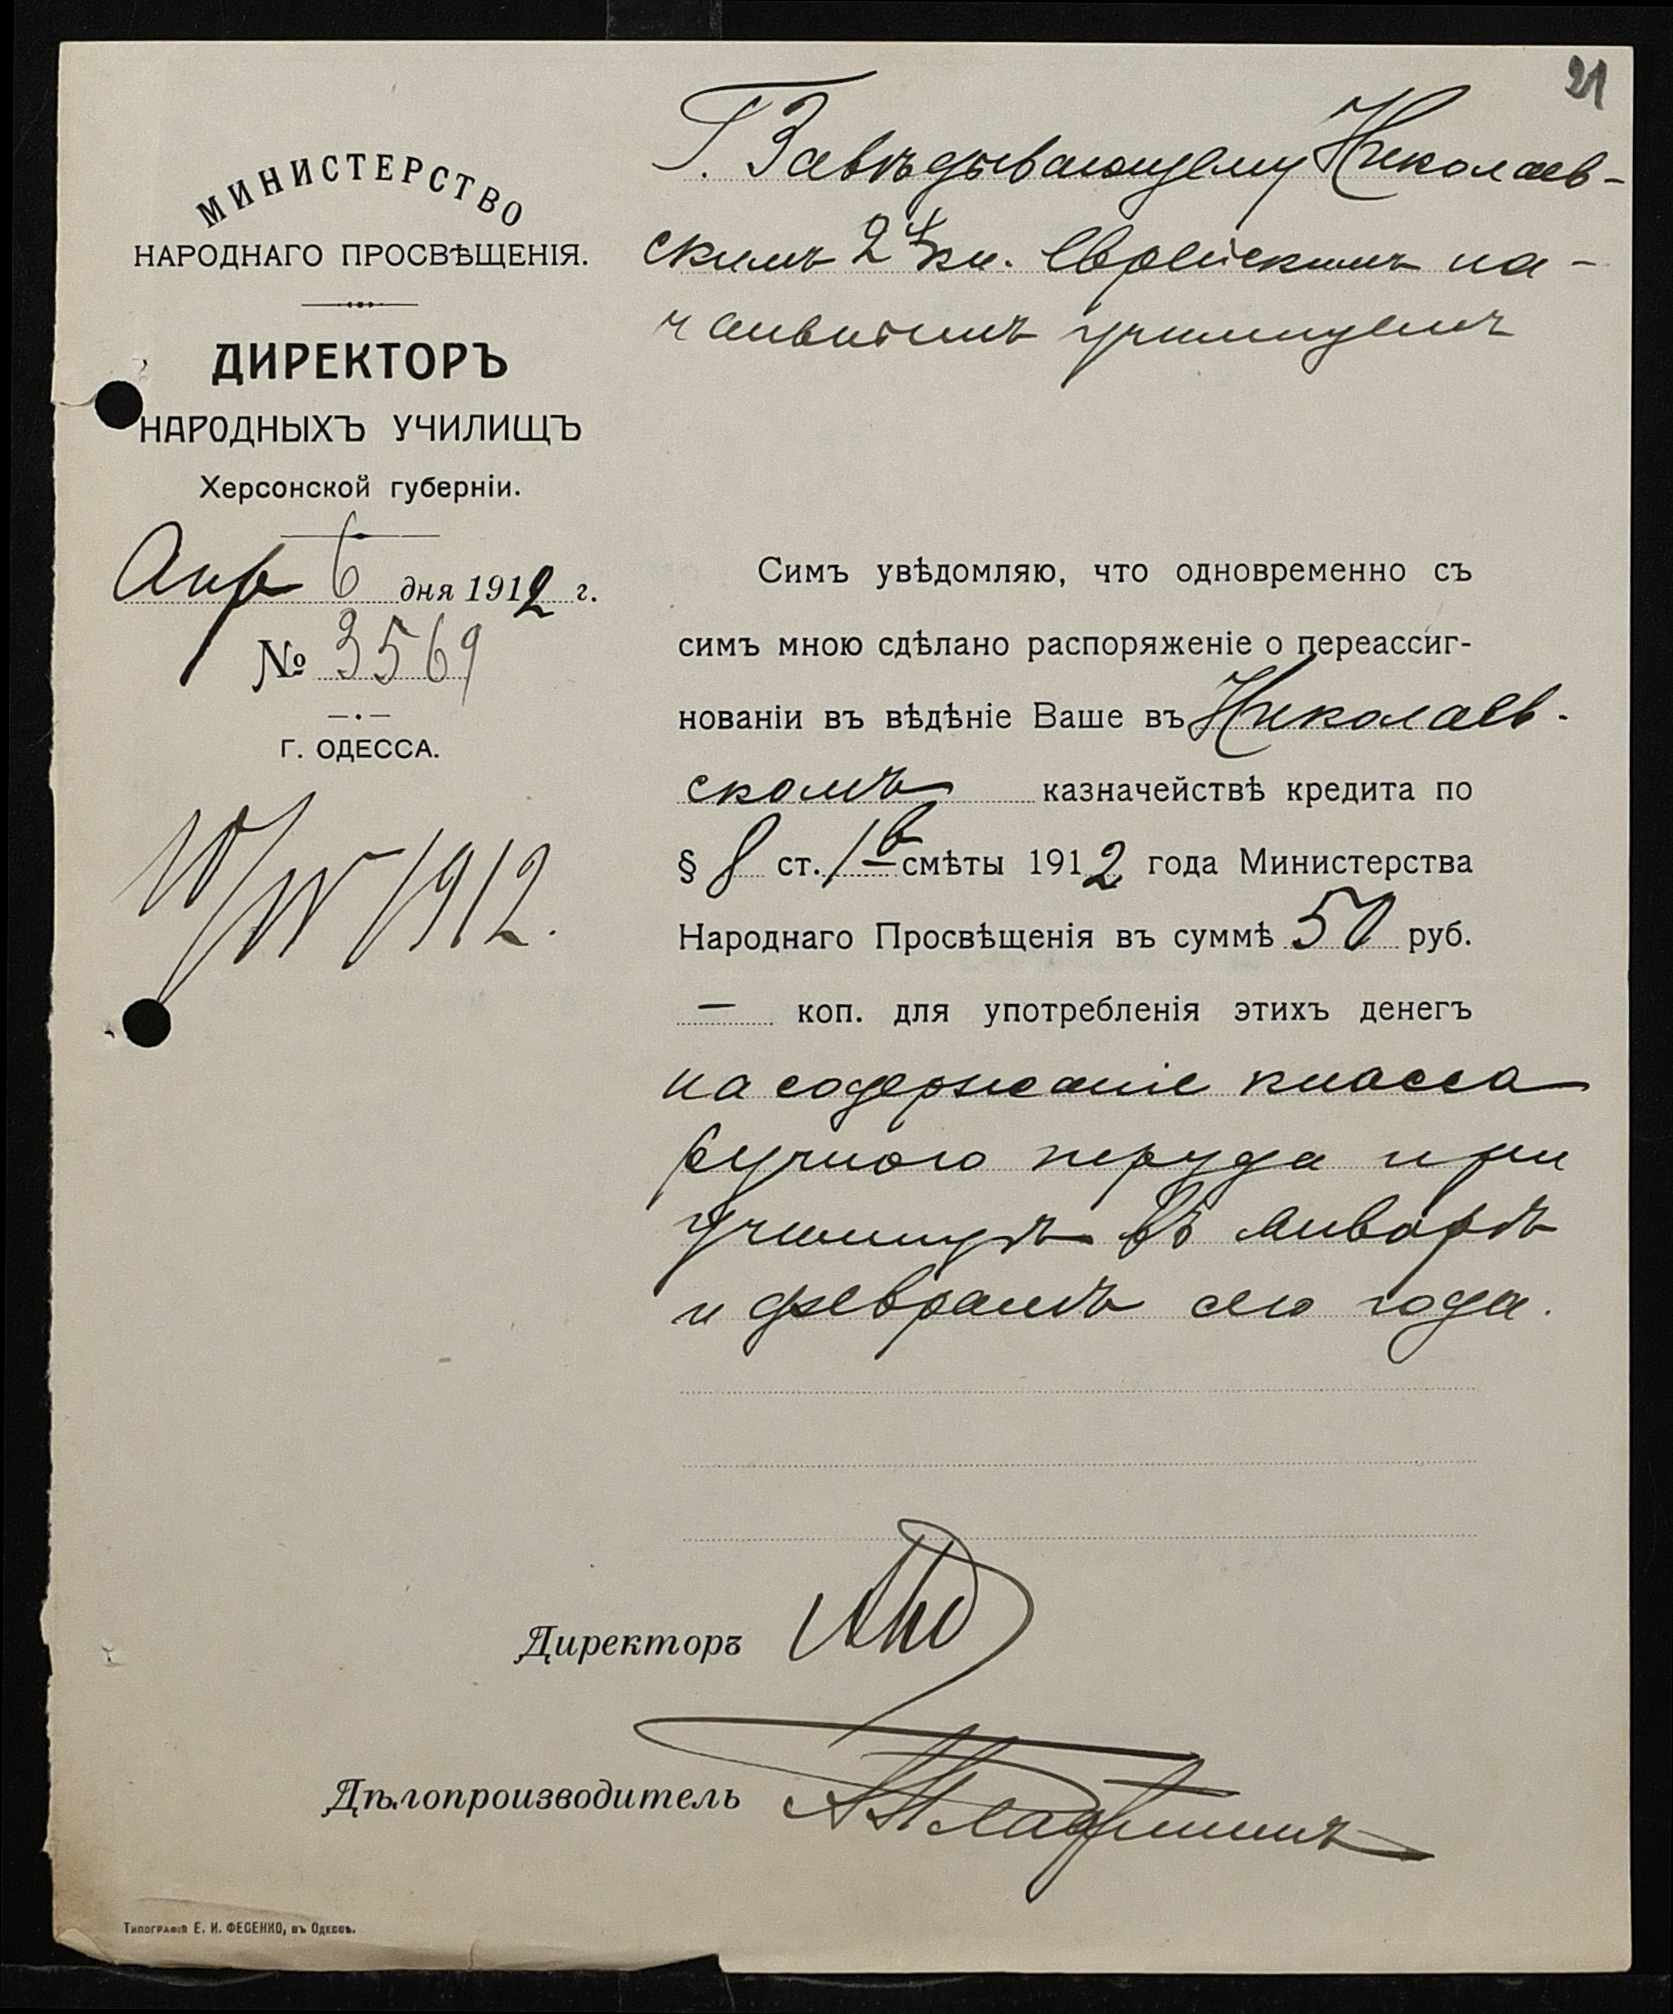 21
МИНИСТЕРСТВО
НАРОДНАГО ПРОСВѢЩЕНІЯ.
ДИРЕКТОРЪ
НАРОДНЫХЪ УЧИЛИЩЪ
Херсонской губерніи.
Апр 6 дня 1912 г.
№ 3569
Г. ОДЕССА.
10/IV 1912.
Г. Завѣдывающему Николаев-
скимъ 2 кл. Еврейскимъ на-
чальнымъ училищемъ
Симъ увѣдомляю, что одновременно съ
симъ мною сдѣлано распоряженіе о переассиг-
нованіи въ вѣдѣніе Ваше въ Николаев-
скомъ казначействѣ кредита по
§ 8 ст. 1 в смѣты 1912 года Министерства
Народнаго Просвѣщенія въ суммѣ 50 руб.
— коп. для употребленія этихъ денегъ
на содержаніе класса
ручного труда при
училищѣ въ январѣ
и февралѣ сего года.
Директоръ
Дѣлопроизводитель
Типографія Е. И. ФЕСЕНКО, въ Одессѣ.